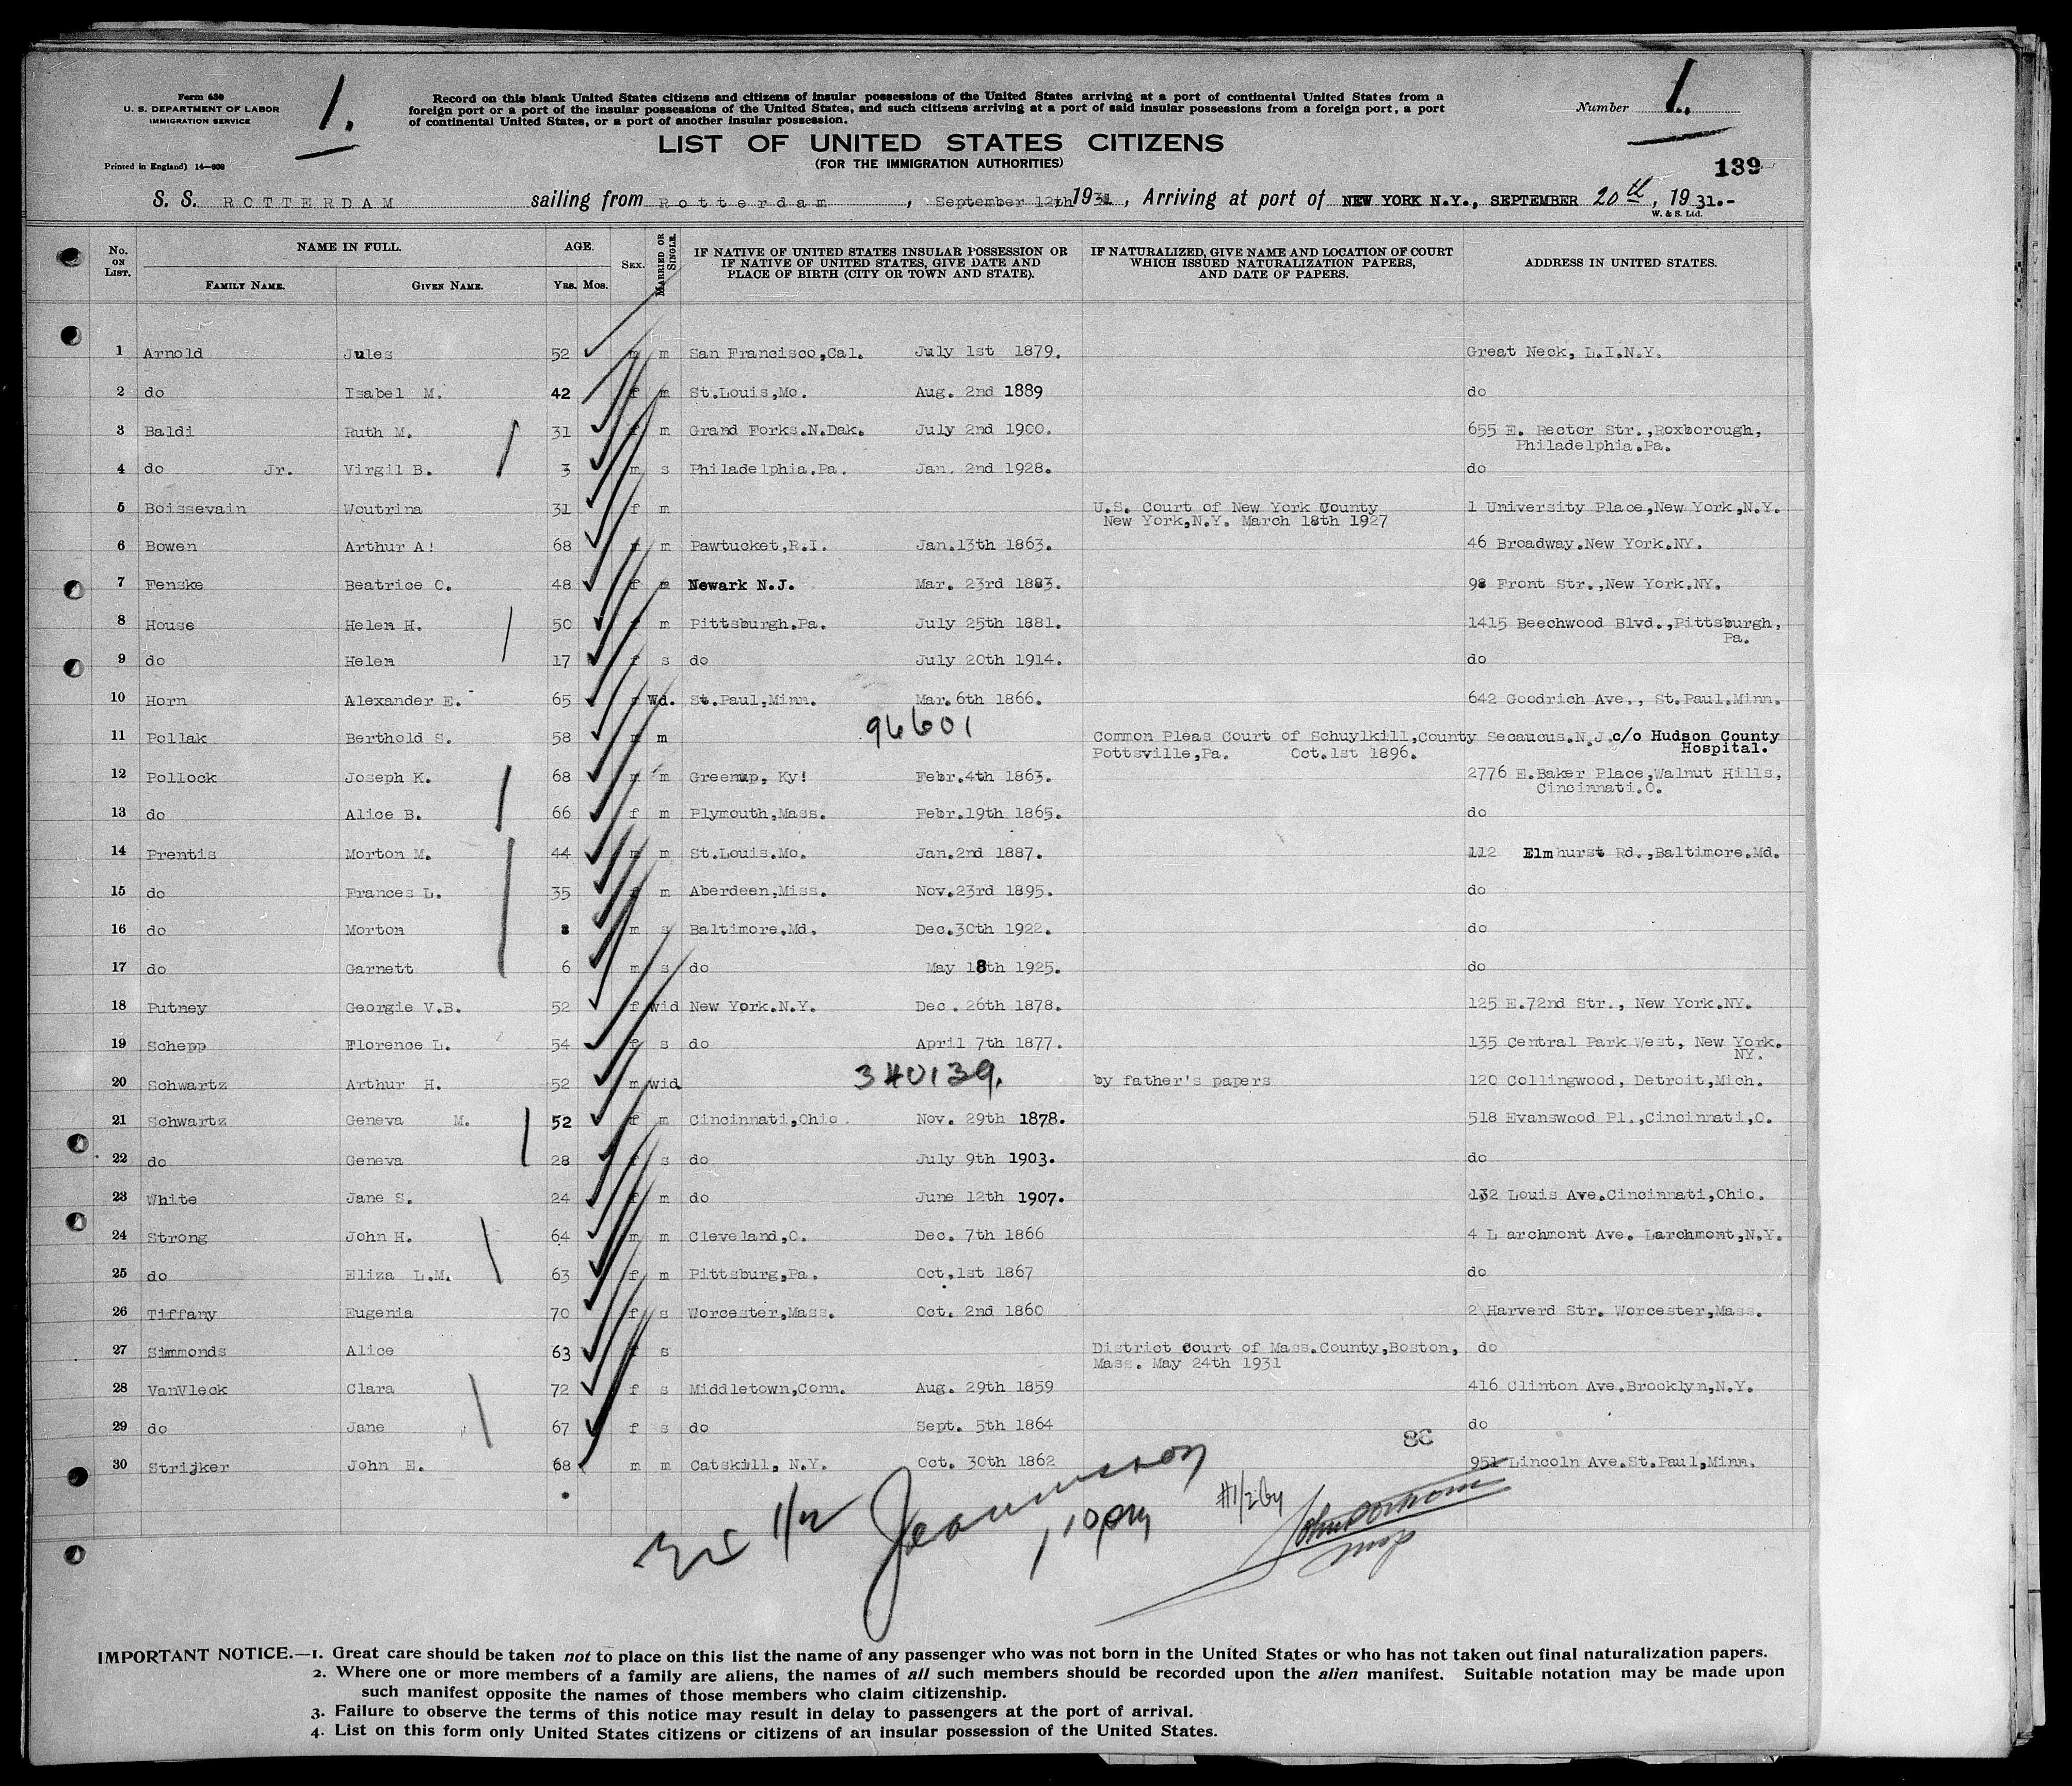 Form 630
U. S. DEPARTMENT OF LABOR
IMMIGRATION SERVICE
Printed in England) 14—608
1.
Record on this blank United States citizens and citizens of insular possessions of the United States arriving at a port of continental United States from a
foreign port or a port of the insular possessions of the United States, and such citizens arriving at a port of said insular possessions from a foreign port, a port
of continental United States, or a port of another insular possession.
Number 1.
LIST OF UNITED STATES CITIZENS
(FOR THE IMMIGRATION AUTHORITIES)
139
S. S. ROTTERDAM sailing from Rotterdam, September 12th 1931, Arriving at port of NEW YORK N.Y., SEPTEMBER 20th, 1931.-
W. & S. Ltd.
No. ON LIST. NAME IN FULL. FAMILY NAME. GIVEN NAME. AGE. YRS. MOS. SEX. MARRIED OR SINGLE. IF NATIVE OF UNITED STATES INSULAR POSSESSION OR IF NATIVE OF UNITED STATES, GIVE DATE AND PLACE OF BIRTH (CITY OR TOWN AND STATE). IF NATURALIZED, GIVE NAME AND LOCATION OF COURT WHICH ISSUED NATURALIZATION PAPERS, AND DATE OF PAPERS. ADDRESS IN UNITED STATES.
1 Arnold Jules 52 m m San Francisco,Cal. July 1st 1879. Great Neck, L.I.N.Y.
2 do Isabel M. 42 f m St.Louis,Mo. Aug. 2nd 1889 do
3 Baldi Ruth M. 31 f m Grand Forks.N.Dak. July 2nd 1900. 655 E. Rector Str.,Roxborough,
Philadelphia.Pa.
4 do Jr. Virgil B. 3 m s Philadelphia.Pa. Jan. 2nd 1928. do
5 Boissevain Woutrina 31 f m U.S. Court of New York County 1 University Place,New York,N.Y.
New York,N.Y. March 18th 1927
6 Bowen Arthur A! 68 m m Pawtucket,R.I. Jan.13th 1863. 46 Broadway.New York.NY.
7 Fenske Beatrice C. 48 f m Newark N.J. Mar. 23rd 1883. 98 Front Str.,New York.NY.
8 House Helen H. 50 f m Pittsburgh.Pa. July 25th 1881. 1415 Beechwood Blvd.,Pittsburgh,
Pa.
9 do Helen 17 f s do July 20th 1914. do
10 Horn Alexander E. 65 m Wd. St.Paul,Minn. Mar.6th 1866. 642 Goodrich Ave., St.Paul.Minn.
96601
11 Pollak Berthold S. 58 m m Common Pleas Court of Schuylkill,County Secaucus.N.J.c/o Hudson County
Pottsville,Pa. Oct.1st 1896. Hospital.
12 Pollock Joseph K. 68 m m Greenup, Ky! Febr.4th 1863. 2776 E.Baker Place,Walnut Hills,
Cincinnati.O.
13 do Alice B. 66 f m Plymouth,Mass. Febr.19th 1865. do
14 Prentis Morton M. 44 m m St.Louis.Mo. Jan.2nd 1887. 112 Elmhurst Rd.,Baltimore.Md.
15 do Frances L. 35 f m Aberdeen,Miss. Nov.23rd 1895. do
16 do Morton 8 m s Baltimore.Md. Dec.30th 1922. do
17 do Garnett 6 m s do May 18th 1925. do
18 Putney Georgie V.B. 52 f wid New York.N.Y. Dec. 26th 1878. 125 E.72nd Str., New York.NY.
19 Schepp Florence L. 54 f s do April 7th 1877. 135 Central Park West, New York.
NY.
20 Schwartz Arthur H. 52 m wid 340139. by father's papers 120 Collingwood, Detroit,Mich.
21 Schwartz Geneva M. 52 f m Cincinnati,Ohio. Nov. 29th 1878. 518 Evanswood Pl.,Cincinnati,O.
22 do Geneva 28 f s do July 9th 1903. do
23 White Jane S. 24 f m do June 12th 1907. 132 Louis Ave.Cincinnati,Ohio.
24 Strong John H. 64 m m Cleveland,O. Dec. 7th 1866 4 L archmont Ave. Larchmont,N.Y.
25 do Eliza L.M. 63 f m Pittsburg,Pa. Oct.1st 1867 do
26 Tiffany Eugenia 70 f s Worcester,Mass. Oct. 2nd 1860 2 Harverd Str. Worcester,Mass.
27 Simmonds Alice 63 f s District Court of Mass.County,Boston, do
Mass. May 24th 1931
28 VanVleck Clara 72 f s Middletown,Conn. Aug. 29th 1859 416 Clinton Ave.Brooklyn,N.Y.
29 do Jane 67 f s do Sept. 5th 1864 do
86
30 Strijker John E. 68 m m Catskill, N.Y. Oct. 30th 1862 951 Lincoln Ave.St.Paul,Minn.
IMPORTANT NOTICE.—1. Great care should be taken not to place on this list the name of any passenger who was not born in the United States or who has not taken out final naturalization papers.
2. Where one or more members of a family are aliens, the names of all such members should be recorded upon the alien manifest. Suitable notation may be made upon
such manifest opposite the names of those members who claim citizenship.
3. Failure to observe the terms of this notice may result in delay to passengers at the port of arrival.
4. List on this form only United States citizens or citizens of an insular possession of the United States.